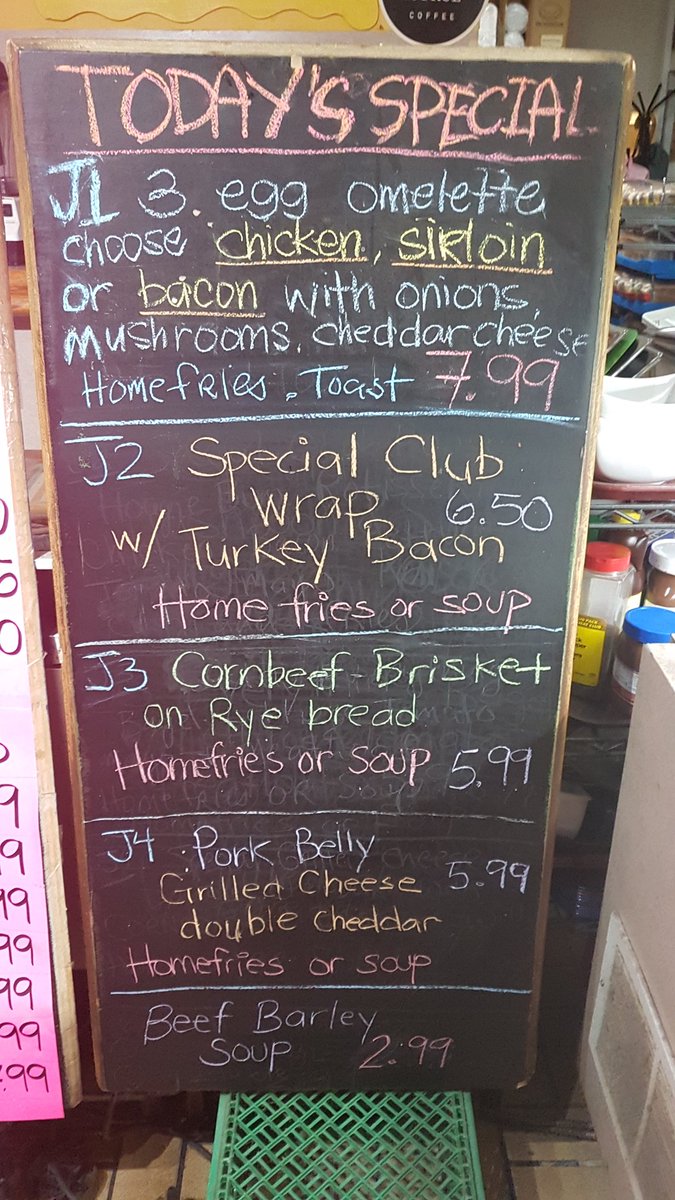 COFFEE
TODAY'S SPECIAL
J1 3 egg omelette
choose chicken, sirloin
or bacon with onions,
mushrooms, cheddar cheese
Homefries, Toast 7.99
J2 Special Club
wrap 6.50
w/ Turkey Bacon
Home fries or soup
J3 Cornbeef-Brisket
on Rye bread
Homefries or soup 5.99
J4 Pork Belly
Grilled Cheese 5.99
double cheddar
Homefries or soup
Beef Barley
Soup 2.99